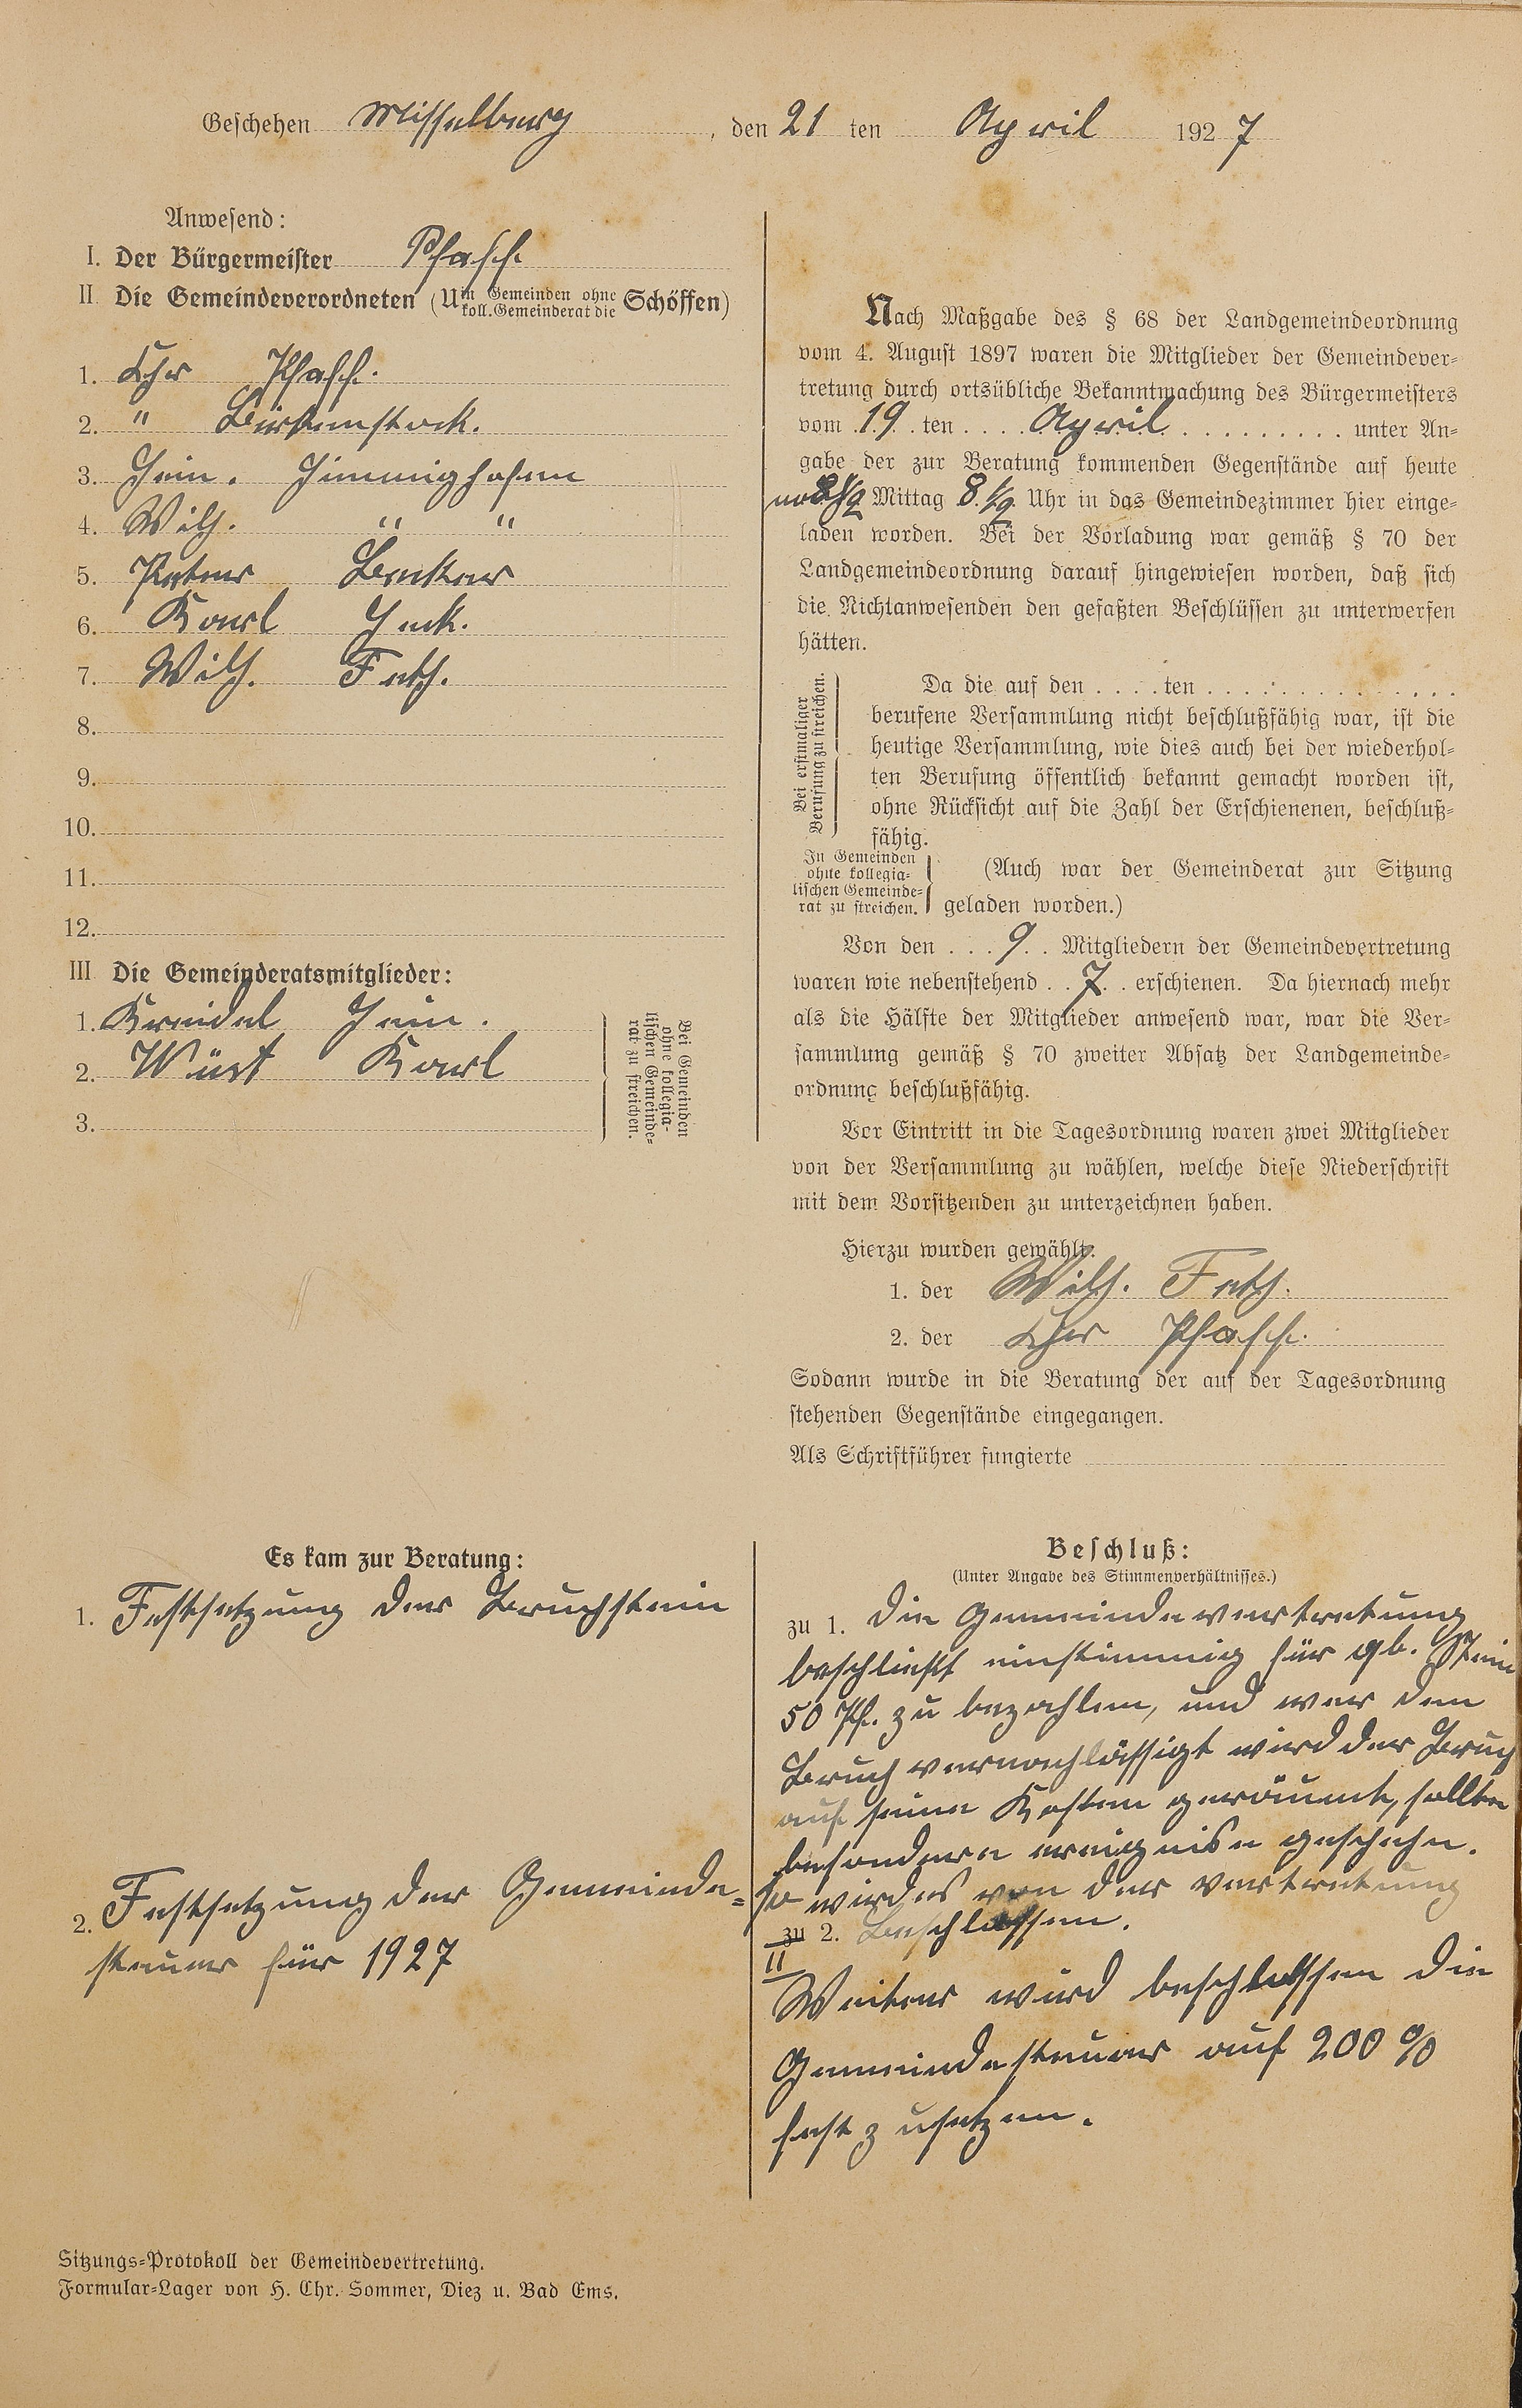 Geschehen Misselberg, den 21 ten April 1927
Anwesend:
I. Der Bürgermeister Pfaff.
II Die Gemeindeverordneten (U in Gemeinden ohne koll. Gemeinderat die Schöffen)
1. Chr Pfaff.
2. " Birkenstock.
3. Hein. Himmighofen
4. Wilh. " "
5. Peter Becker
6. Karl Heck.
7. Wilh. Feth.
8.
9.
10.
11.
12.
III Die Gemeinderatsmitglieder:
1. Kreidel Hein.
2. Wüst Karl
3.
Bei Gemeinden
ohne kollegia-
lischen Gemeinde-
rat zu streichen.
Nach Maßgabe des § 68 der Landgemeindeordnung
vom 4. August 1897 waren die Mitglieder der Gemeindever-
tretung durch ortsübliche Bekanntmachung des Bürgermeisters
vom 19. ten April unter An-
gabe der zur Beratung kommenden Gegenstände auf heute
Mittag 8. 1/2 Uhr in das Gemeindezimmer hier einge-
laden worden. Bei der Vorladung war gemäß § 70 der
Landgemeindeordnung darauf hingewiesen worden, daß sich
die Nichtanwesenden den gefaßten Beschlüssen zu unterwerfen
hätten.
Bei erstmaliger
Berufung zu streichen.
Da die auf den . . . . ten . . . . . . . . . . . . . .
berufene Versammlung nicht beschlußfähig war, ist die
heutige Versammlung, wie dies auch bei der wiederhol-
ten Berufung öffentlich bekannt gemacht worden ist,
ohne Rücksicht auf die Zahl der Erschienenen, beschluß-
fähig.
In Gemeinden
ohne kollegia-
lischen Gemeinde-
rat zu streichen.
(Auch war der Gemeinderat zur Sitzung
geladen worden.)
Von den . . . 9 . . Mitgliedern der Gemeindevertretung
waren wie nebenstehend . . 7 . . erschienen. Da hiernach mehr
als die Hälfte der Mitglieder anwesend war, war die Ver-
sammlung gemäß § 70 zweiter Absatz der Landgemeinde-
ordnung beschlußfähig.
Vor Eintritt in die Tagesordnung waren zwei Mitglieder
von der Versammlung zu wählen, welche diese Niederschrift
mit dem Vorsitzenden zu unterzeichnen haben.
Hierzu wurden gewählt:
1. der Wilh. Feth.
2. der Chr Pfaff.
Sodann wurde in die Beratung der auf der Tagesordnung
stehenden Gegenstände eingegangen.
Als Schriftführer fungierte
Es kam zur Beratung:
1. Festsetzung der Bruchstein
2. Festsetzung der Gemeinde-
steuer für 1927
Beschluß:
(Unter Angabe des Stimmenverhältnisses.)
zu 1. Die Gemeindevertretung
beschließt einstimmig für qb. Stein
50 Pf. zu bezahlen, und wer den
Bruch vernachlässigt wird der Bruch
auf seine Kosten geräumt, sollte
besondere ereignise geschehn.
so wird es von der vertretung
zu 2. Beschlossen.
II
Weiter wird beschlossen die
Gemeindesteuer auf 200 %
fest zusetzen.
Sitzungs-Protokoll der Gemeindevertretung.
Formular-Lager von H. Chr. Sommer, Diez u. Bad Ems.